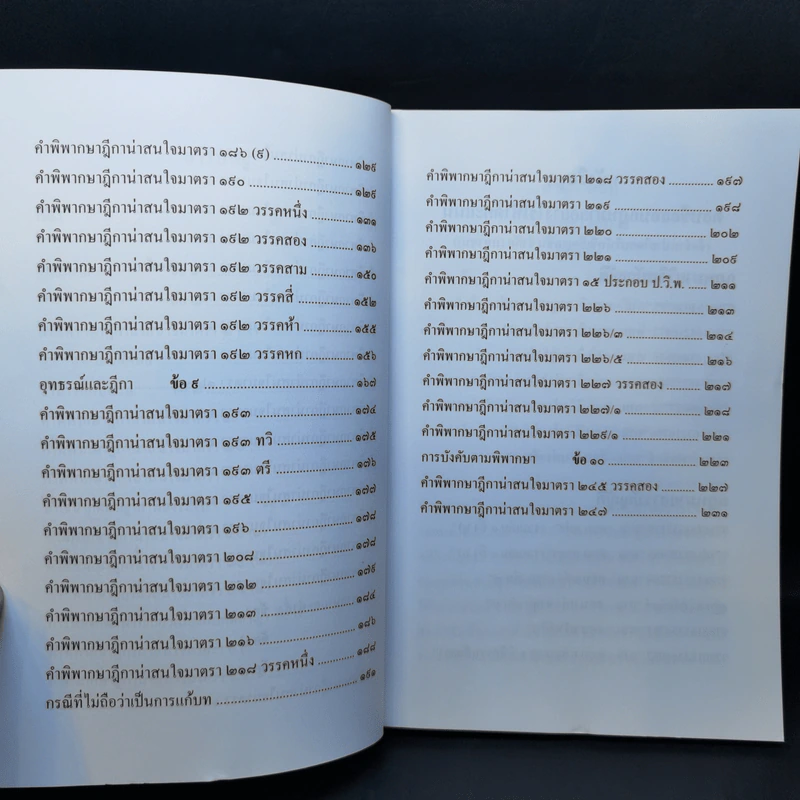 คำพิพากษาฎีกาน่าสนใจมาตรา ๑๘๖ (๙) .................... ๑๒๙
คำพิพากษาฎีกาน่าสนใจมาตรา ๑๙๐ .................... ๑๒๙
คำพิพากษาฎีกาน่าสนใจมาตรา ๑๙๒ วรรคหนึ่ง .................... ๑๓๑
คำพิพากษาฎีกาน่าสนใจมาตรา ๑๙๒ วรรคสอง .................... ๑๓๖
คำพิพากษาฎีกาน่าสนใจมาตรา ๑๙๒ วรรคสาม .................... ๑๕๐
คำพิพากษาฎีกาน่าสนใจมาตรา ๑๙๒ วรรคสี่ .................... ๑๕๒
คำพิพากษาฎีกาน่าสนใจมาตรา ๑๙๒ วรรคห้า .................... ๑๕๕
คำพิพากษาฎีกาน่าสนใจมาตรา ๑๙๒ วรรคหก .................... ๑๕๖
อุทธรณ์และฎีกา ข้อ ๙ .................... ๑๖๗
คำพิพากษาฎีกาน่าสนใจมาตรา ๑๙๓ .................... ๑๗๔
คำพิพากษาฎีกาน่าสนใจมาตรา ๑๙๓ ทวิ .................... ๑๗๕
คำพิพากษาฎีกาน่าสนใจมาตรา ๑๙๓ ตรี .................... ๑๗๖
คำพิพากษาฎีกาน่าสนใจมาตรา ๑๙๕ .................... ๑๗๗
คำพิพากษาฎีกาน่าสนใจมาตรา ๑๙๖ .................... ๑๗๘
คำพิพากษาฎีกาน่าสนใจมาตรา ๒๐๘ .................... ๑๗๘
คำพิพากษาฎีกาน่าสนใจมาตรา ๒๑๒ .................... ๑๗๙
คำพิพากษาฎีกาน่าสนใจมาตรา ๒๑๓ .................... ๑๘๔
คำพิพากษาฎีกาน่าสนใจมาตรา ๒๑๖ .................... ๑๘๖
คำพิพากษาฎีกาน่าสนใจมาตรา ๒๑๘ วรรคหนึ่ง .................... ๑๘๘
กรณีที่ไม่ถือว่าเป็นการแก้บท .................... ๑๙๑
คำพิพากษาฎีกาน่าสนใจมาตรา ๒๑๘ วรรคสอง ............. ๑๙๗
คำพิพากษาฎีกาน่าสนใจมาตรา ๒๑๙ .................... ๑๙๘
คำพิพากษาฎีกาน่าสนใจมาตรา ๒๒๐ .................... ๒๐๒
คำพิพากษาฎีกาน่าสนใจมาตรา ๒๒๑ .................... ๒๐๙
คำพิพากษาฎีกาน่าสนใจมาตรา ๑๕ ประกอบ ป.วิ.พ. ..... ๒๑๑
คำพิพากษาฎีกาน่าสนใจมาตรา ๒๒๖ .................... ๒๑๓
คำพิพากษาฎีกาน่าสนใจมาตรา ๒๒๖/๓ .................... ๒๑๔
คำพิพากษาฎีกาน่าสนใจมาตรา ๒๒๖/๕ .................... ๒๑๖
คำพิพากษาฎีกาน่าสนใจมาตรา ๒๒๗ วรรคสอง ............. ๒๑๗
คำพิพากษาฎีกาน่าสนใจมาตรา ๒๒๗/๑ .................... ๒๑๘
คำพิพากษาฎีกาน่าสนใจมาตรา ๒๒๙/๑ .................... ๒๒๑
การบังคับตามพิพากษา ข้อ ๑๐ .................... ๒๒๓
คำพิพากษาฎีกาน่าสนใจมาตรา ๒๔๕ วรรคสอง .......... ๒๒๗
คำพิพากษาฎีกาน่าสนใจมาตรา ๒๔๗ .................... ๒๓๑